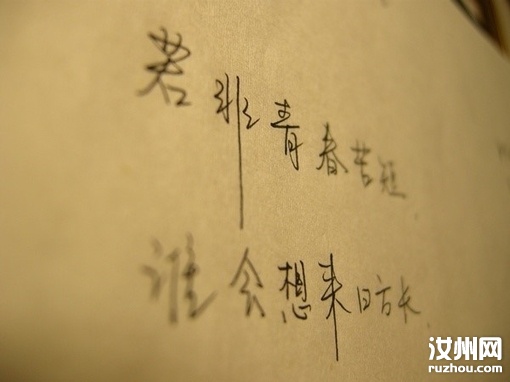 若非青春苦短
谁会想来日方长
汝州网
ruzhou.com